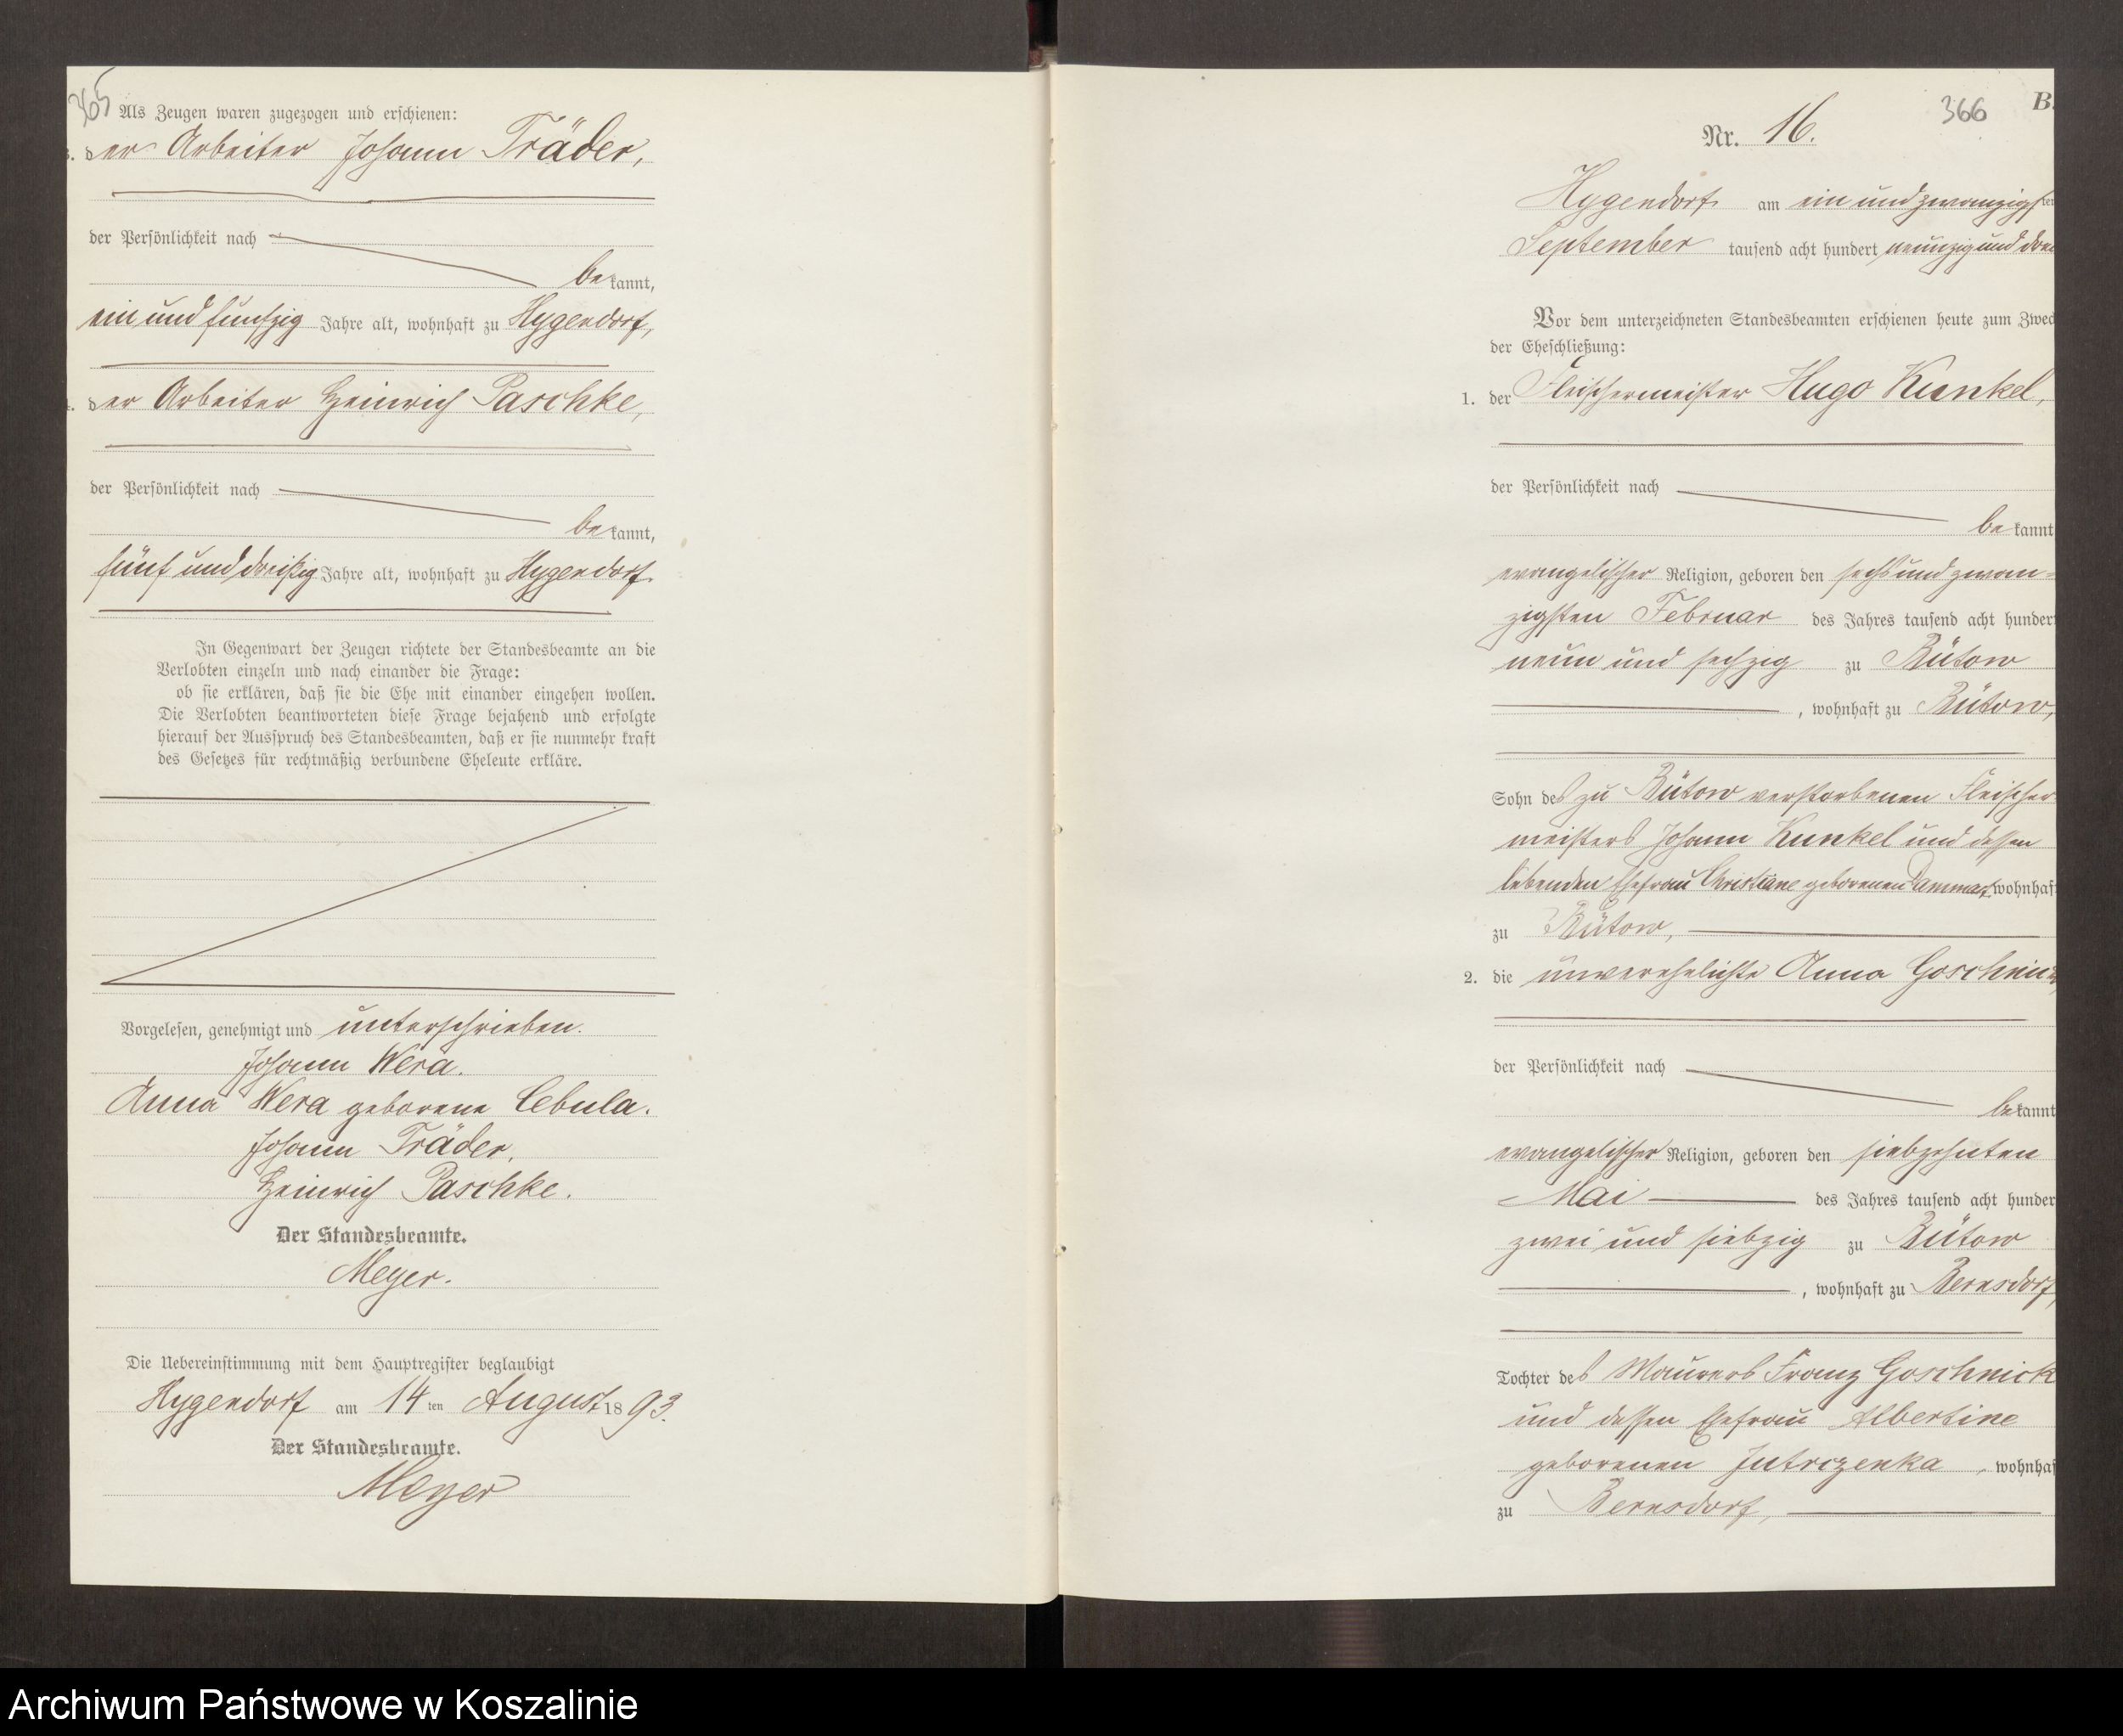 365
Als Zeugen waren zugezogen und erschienen:
3. der Arbeiter Johann Träder,
der Persönlichkeit nach
bekannt,
ein und fünfzig Jahre alt, wohnhaft zu Hygendorf,
4. der Arbeiter Heinrich Paschke,
der Persönlichkeit nach
bekannt,
fünf und dreißig Jahre alt, wohnhaft zu Hygendorf.
In Gegenwart der Zeugen richtete der Standesbeamte an die
Verlobten einzeln und nach einander die Frage:
ob sie erklären, daß sie die Ehe mit einander eingehen wollen.
Die Verlobten beantworteten diese Frage bejahend und erfolgte
hierauf der Ausspruch des Standesbeamten, daß er sie nunmehr kraft
des Gesetzes für rechtmäßig verbundene Eheleute erkläre.
Vorgelesen, genehmigt und unterschrieben.
Johann Wera.
Anna Wera geborene Cebula.
Johann Träder.
Heinrich Paschke.
Der Standesbeamte.
Meyer.
Die Uebereinstimmung mit dem Hauptregister beglaubigt
Hygendorf am 14 ten August 18 93.
Der Standesbeamte.
Meyer
366 B.
Nr. 16.
Hygendorf am ein und zwanzigsten
September tausend acht hundert neunzig und drei
Vor dem unterzeichneten Standesbeamten erschienen heute zum Zweck
der Eheschließung:
1. der Fleischermeister Hugo Kunkel,
der Persönlichkeit nach
bekannt
evangelischer Religion, geboren den sechs und zwan-
zigsten Februar des Jahres tausend acht hundert
neun und sechzig zu Bütow
, wohnhaft zu Bütow,
Sohn des zu Bütow verstorbenen Fleischer
meisters Johann Kunkel und dessen
lebenden Ehefrau Christiane geborenen wohnhaft
zu Bütow,
2. die unverehelichte Anna Goschnick
der Persönlichkeit nach
bekannt
evangelischer Religion, geboren den siebzehnten
Mai des Jahres tausend acht hunder
zwei und siebzig zu Bütow
, wohnhaft zu Bernsdorf,
Tochter des Maurers Franz Goschnick
und dessen Ehefrau Albertine
geborenen Jutrczenka, wohnhaf
zu Bernsdorf,
Archiwum Państwowe w Koszalinie